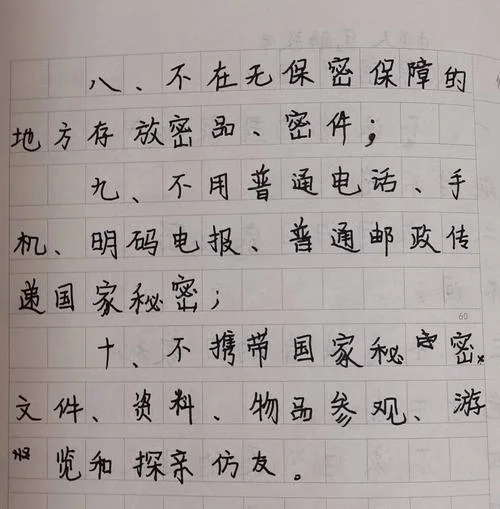 八、不在无保密保障的
地方存放密品、密件；
九、不用普通电话、手
机、明码电报、普通邮政传
递国家秘密；
60
十、不携带国家秘密
文件、资料、物品参观、游
览和探亲仿友。